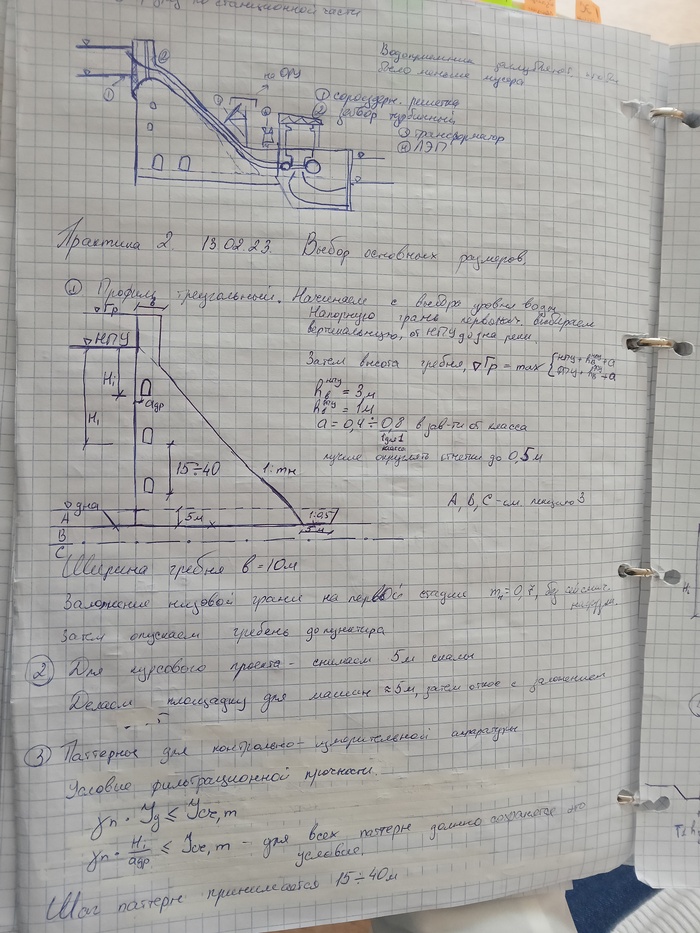 по станционной части
Водоприемник
было меньше мусора
по ОРУ
① сороудерж. решетка
② затвор турбинный
③ трансформатор
④ ЛЭП
①
②
Практика 2. 13.02.23. Выбор основных размеров.
① Профиль треугольный. Начинаем с выбора уровня воды
Напорную грань первонач. выбираем
вертикальную, от НПУ до дна реки.
Затем высота гребня, ▽Гр = max { НПУ + hв + a
ФПУ + hв + a
hв НПУ = 3м
hв = 1м
a = 0,4 ÷ 0,8 в зав-ти от класса
1 для 1
класса
лучше округлять отметки до 0,5м
А, В, С - см. лекцию 3
▽Гр
в
▽НПУ
Hi
Hi
aдр
15÷40
1:mн
▽дна
5м
1:0,5
5м
А
В
С
Ширина гребня в = 10м
Заложение низовой грани на первой стадии = 0,7, сейсмич.
нагрузка.
Затем опускаем гребень до пунктира
② Для курсового проекта - снимаем 5м скалы
Делаем площадку для машин ≈ 5м, затем откос с заложением
③ Паттерны для контрольно-измерительной аппаратуры
Условие фильтрационной прочности.
γn · Jy ≤ Jcr,m
γn · Hi/aдр ≤ Jcr,m - для всех паттерн должно сохранятся это
условие.
Шаг паттерн принимается 15÷40м